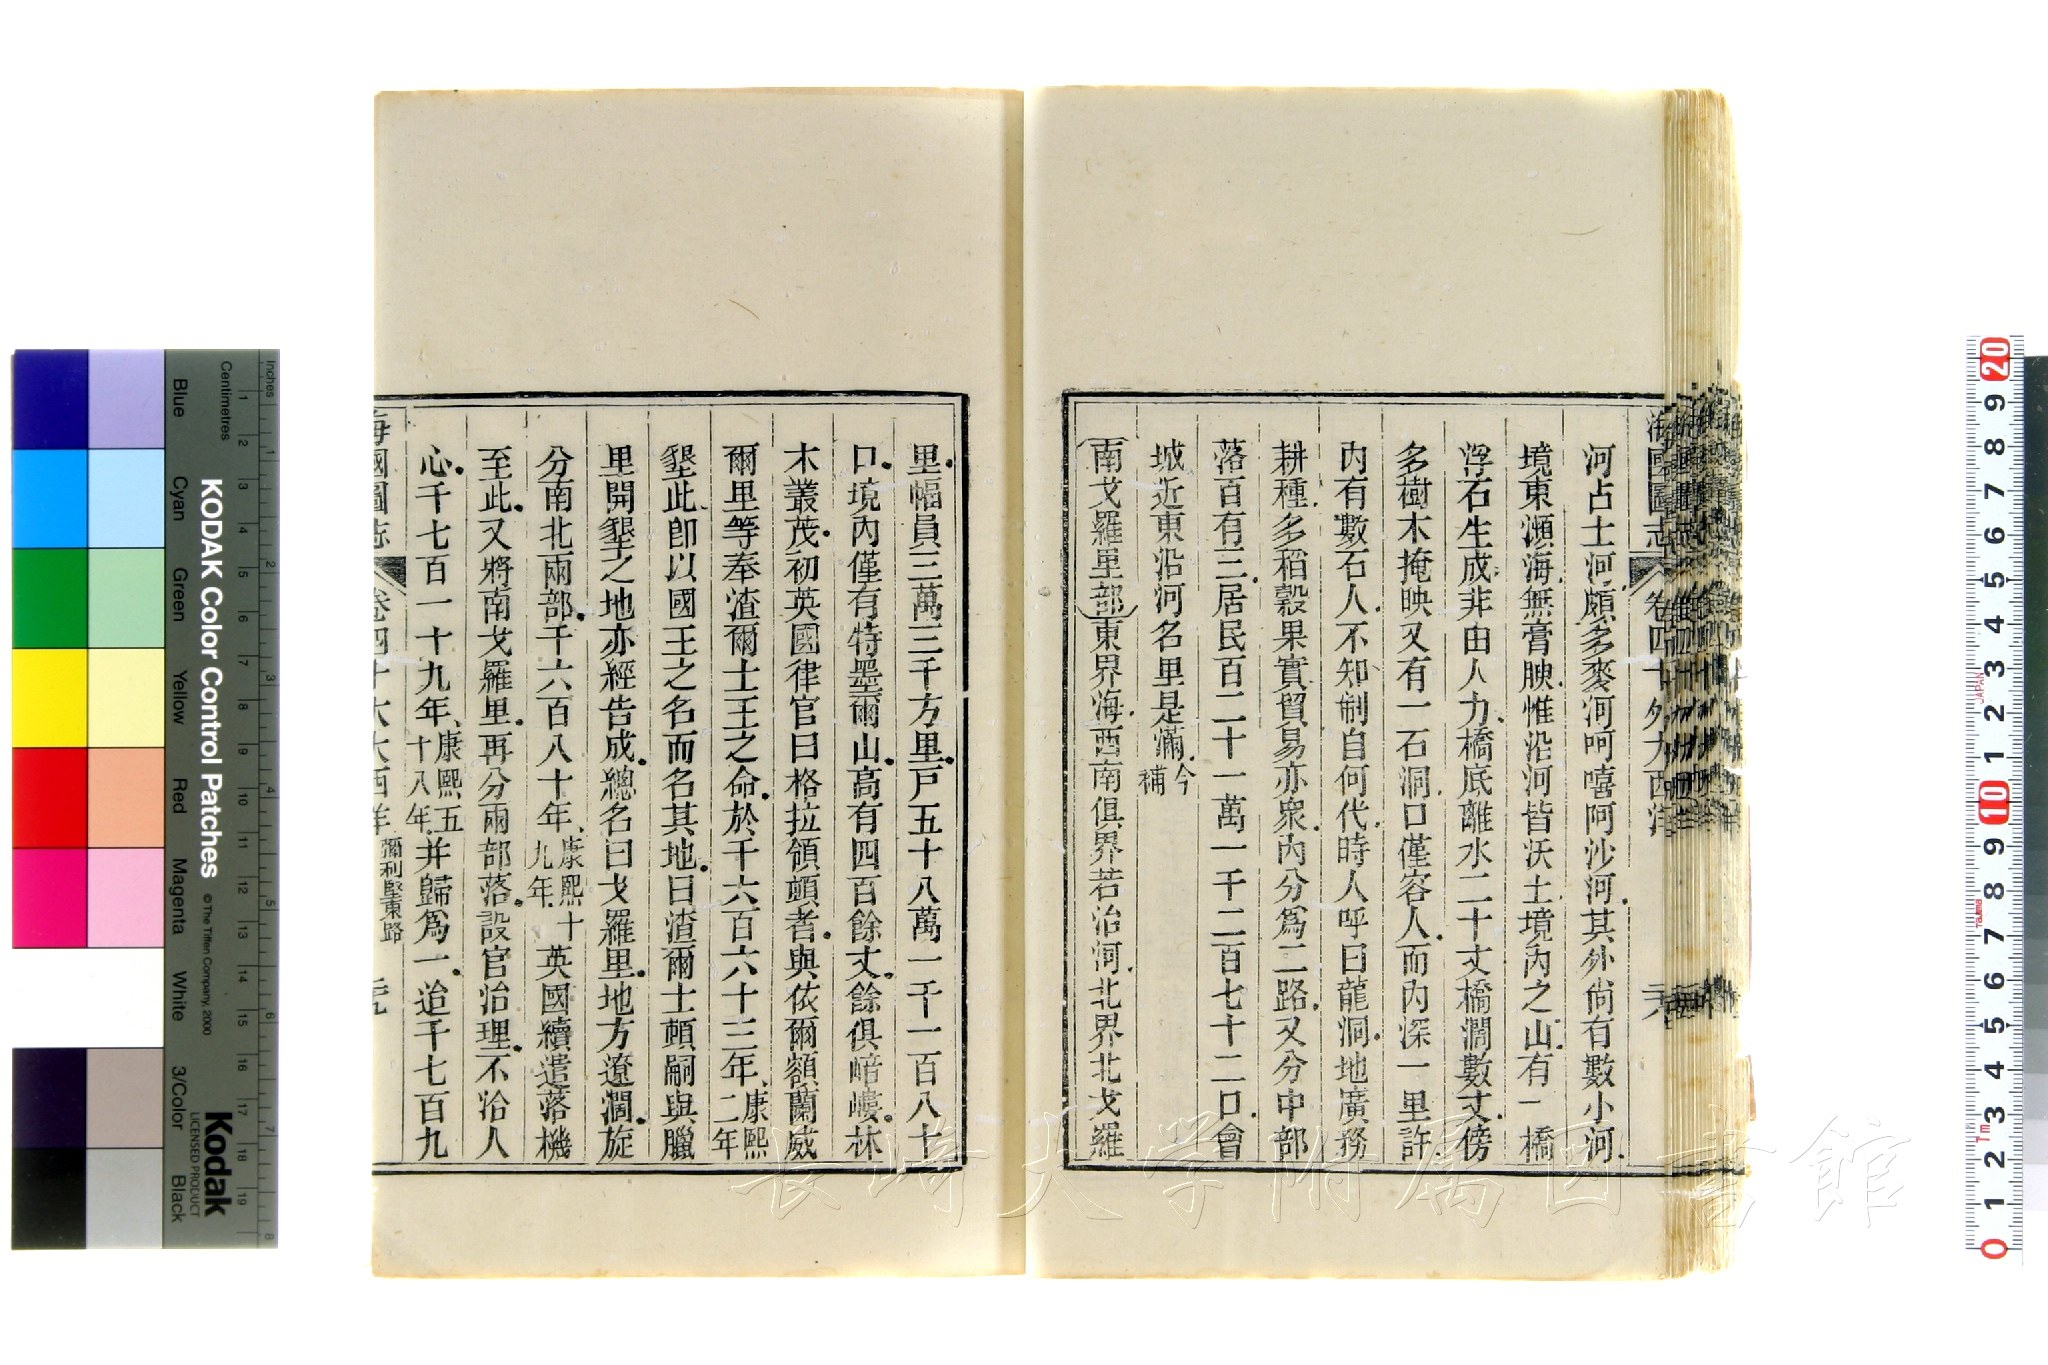 河占士河頗多麥河呵嘻阿沙河其外尙有數小河
境東瀕海無膏腴惟沿河皆沃土境內之山有一橋
浮石生成非由人力橋底離水二十丈橋濶數丈傍
多樹木掩映又有一石洞口僅容人而內深一里許
內有數石人不知制自何代時人呼曰龍洞地廣務
耕種多稻穀果實貿易亦衆內分爲二路又分中部
落百有三居民百二十一萬一千二百七十二口會
城近東沿河名里是滿今補
南戈羅里部東界海西南俱界若治河北界北戈羅
里幅員三萬三千方里戸五十八萬一千一百八十
口境內僅有特墨爾山高有四百餘丈餘俱㟏嶁林
木叢茂初英國律官曰格拉領頓者與依爾額蘭威
爾里等奉渣爾士王之命於千六百六十三年康熙二年
墾此卽以國王之名而名其地曰渣爾士頓嗣與臘
里開墾之地亦經告成總名曰戈羅里地方遼濶旋
分南北兩部千六百八十年康熙十九年英國續遣落機
至此又將南戈羅里再分兩部落設官治理不洽人
心千七百一十九年康熙五十八年并歸爲一迨千七百九
海國圖志 卷四十六大西洋 彌利堅東路 元九
KODAK Color Control Patches
© The Tiffen Company, 2000
Kodak
LICENSED PRODUCT
Inches
Centimetres
Blue
Cyan
Green
Yellow
Red
Magenta
White
3/Color
Black
長崎大学附属図書館
JAPAN
Tajima